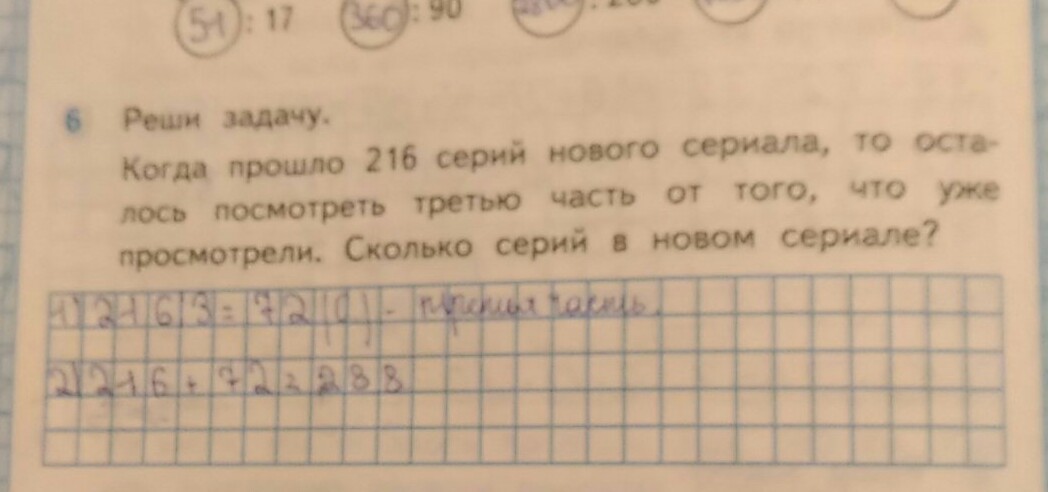 51 : 17 360 : 90
6 Реши задачу.
Когда прошло 216 серий нового сериала, то оста-
лось посмотреть третью часть от того, что уже
просмотрели. Сколько серий в новом сериале?
1) 216:3=72(с) - третья часть.
2) 216+72=288